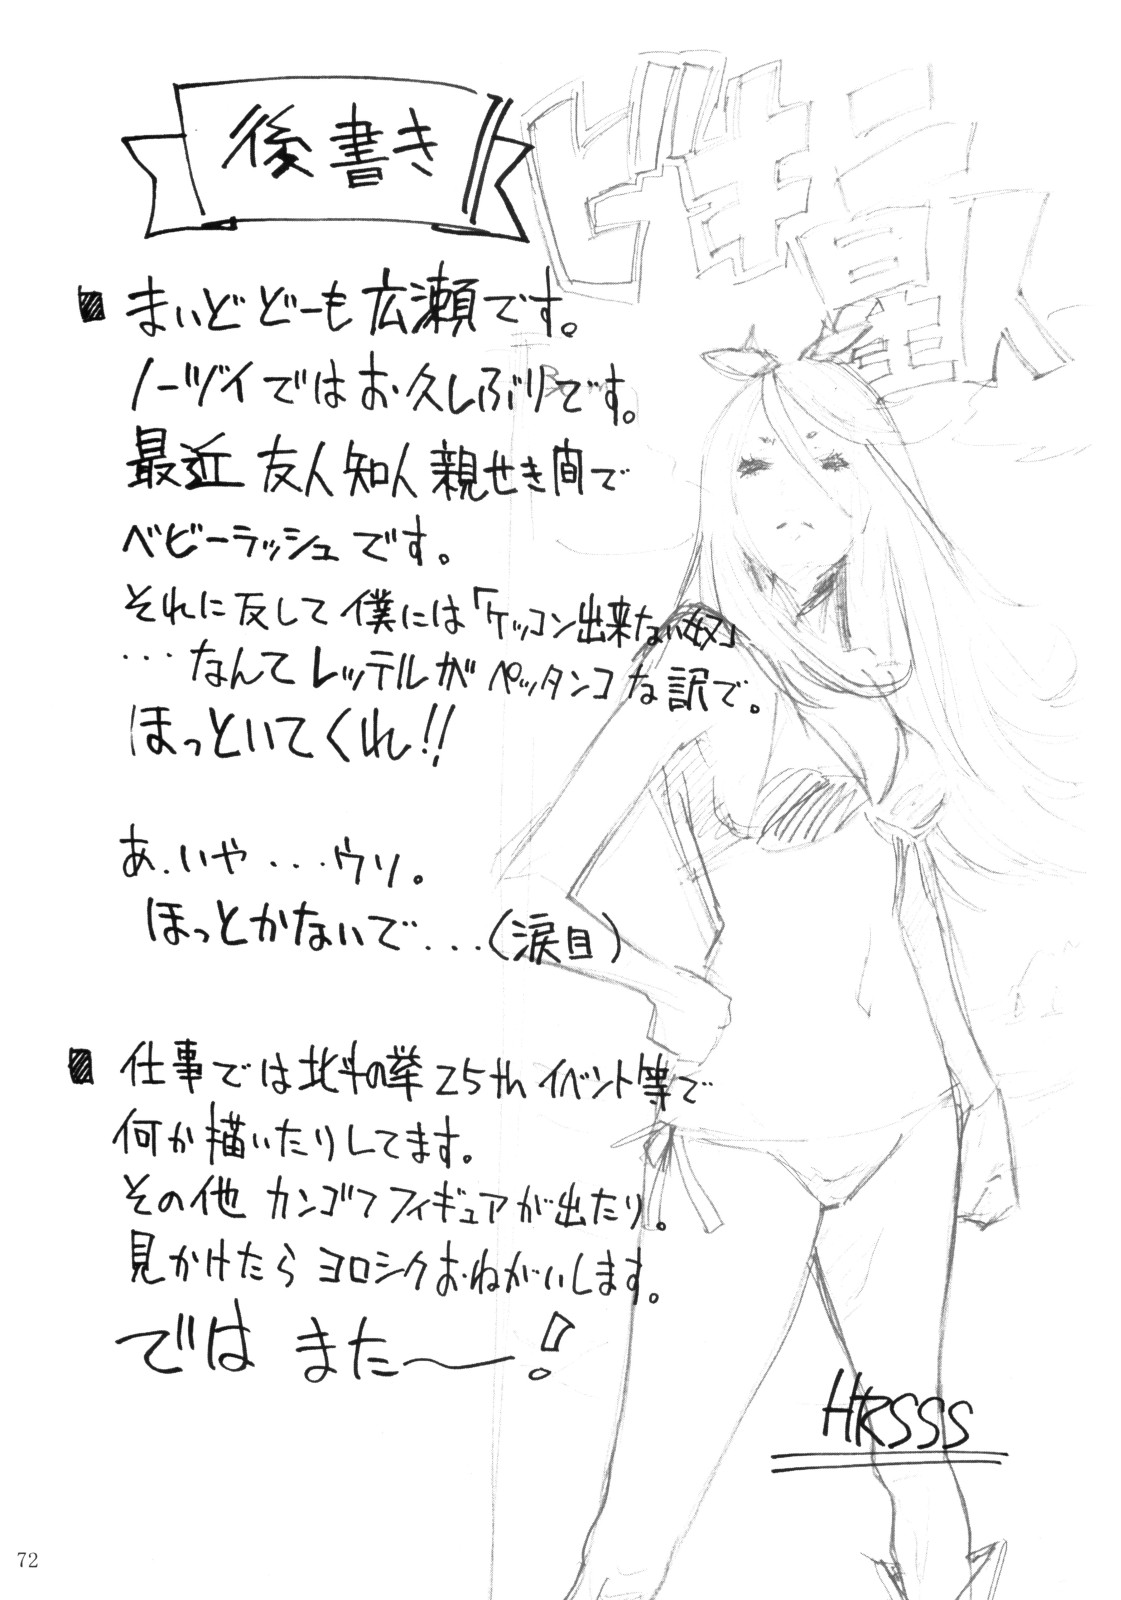 後書き
■ まぃど どーも 広瀬です。
ノーヅイではお久しぶりです。
最近 友人 知人 親せき間で
ベビーラッシュです。
それに反して 僕には「ケッコン出来ない奴」
・・・なんてレッテルが ペッタンコな訳で。
ほっといてくれ!!
あ、いや・・・ウソ。
ほっとかないで・・・(涙目)
■ 仕事では北斗の拳 25th イベント等で
何か描いたりしてます。
その他 カンゴフ フィギュアが出たり。
見かけたら ヨロシクおねがいします。
では また〜!
HRSSS
72